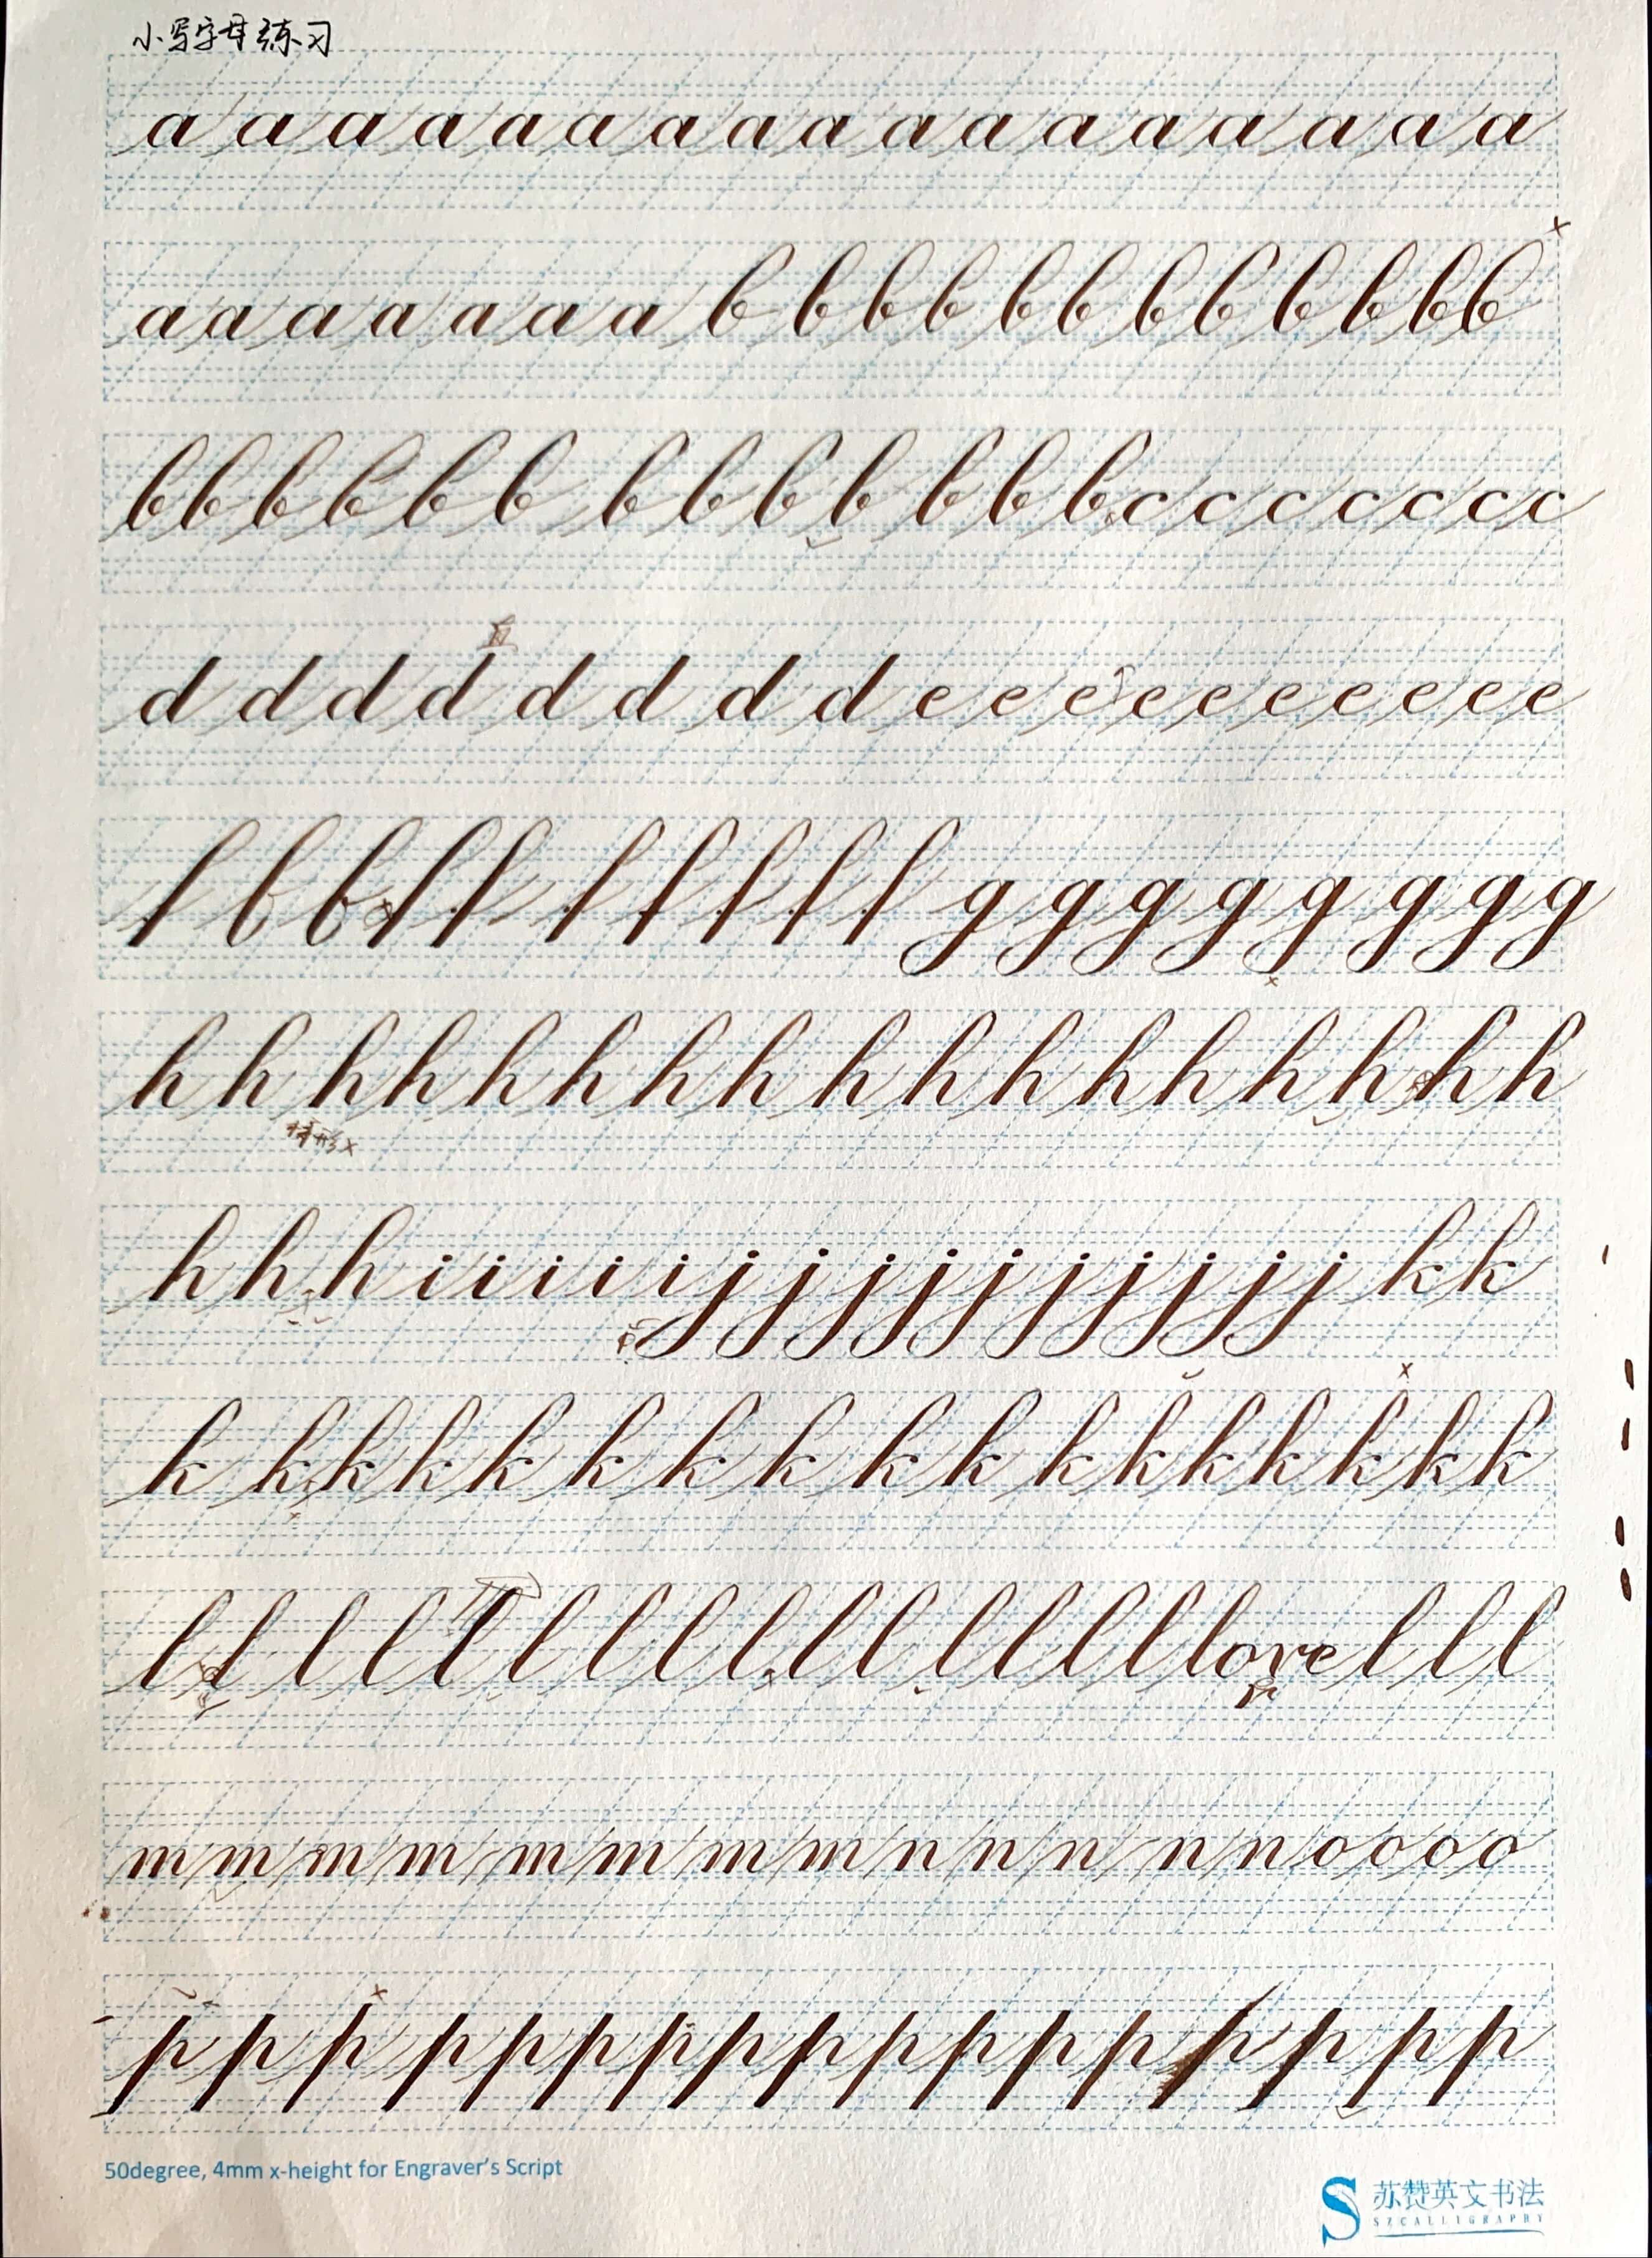 小写字母练习
a a a a a a a a a a a a a a a a a
a a a a a a a b b b b b b b b b b b b
b b b b b b b b b b b b b c c c c c c c
直
d d d d d d d d e e e e e e e e e e
f b b f f f f f f f f g g g g g g g g
h h h h h h h h h h h h h h h h h
h h h i i i i i j j j j j j j j j j k k
k k k k k k k k k k k k k k k k k
l l l l l l l l l l l l l l l l love l l l
m m m m m m m m n n n n n o o o o
p p p p p p p p p p p p p p p p p
50degree, 4mm x-height for Engraver's Script
苏赞英文书法
SZCALLIGRAPHY